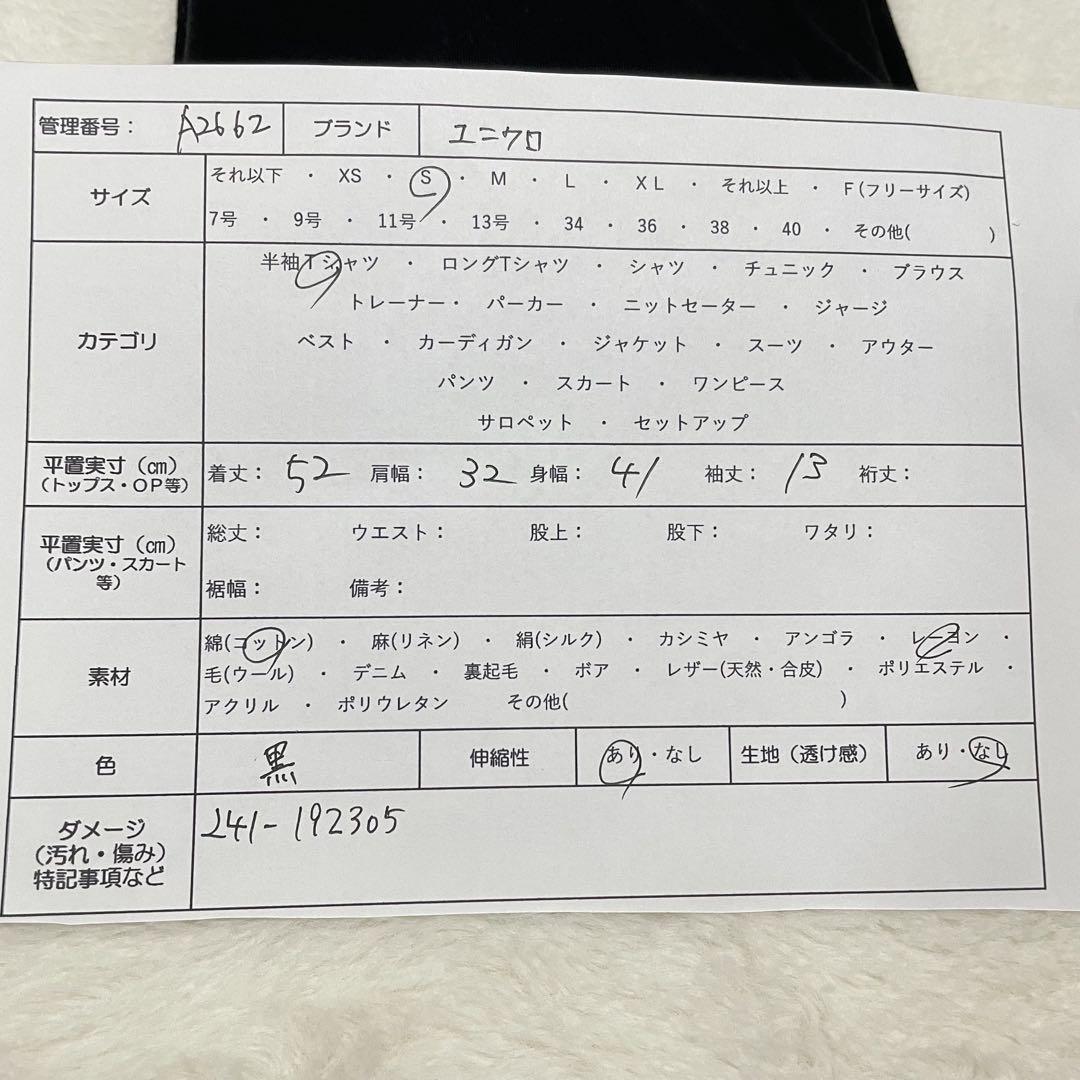 管理番号： A2662 ブランド ユニクロ
サイズ
それ以下 ・ XS ・ S ・ M ・ L ・ XL ・ それ以上 ・ F(フリーサイズ)
7号 ・ 9号 ・ 11号 ・ 13号 ・ 34 ・ 36 ・ 38 ・ 40 ・ その他( )
カテゴリ
半袖Tシャツ ・ ロングTシャツ ・ シャツ ・ チュニック ・ ブラウス
トレーナー・ パーカー ・ ニットセーター ・ ジャージ
ベスト ・ カーディガン ・ ジャケット ・ スーツ ・ アウター
パンツ ・ スカート ・ ワンピース
サロペット ・ セットアップ
平置実寸（㎝）
（トップス・OP等）
着丈： 52 肩幅： 32 身幅： 41 袖丈： 13 裄丈：
平置実寸（㎝）
（パンツ・スカート
等）
総丈： ウエスト： 股上： 股下： ワタリ：
裾幅： 備考：
素材
綿(コットン) ・ 麻(リネン) ・ 絹(シルク) ・ カシミヤ ・ アンゴラ ・ レーヨン ・
毛(ウール) ・ デニム ・ 裏起毛 ・ ボア ・ レザー(天然・合皮) ・ ポリエステル ・
アクリル ・ ポリウレタン その他( )
色 黒 伸縮性 あり・なし 生地（透け感） あり・なし
ダメージ
（汚れ・傷み）
特記事項など
241-192305